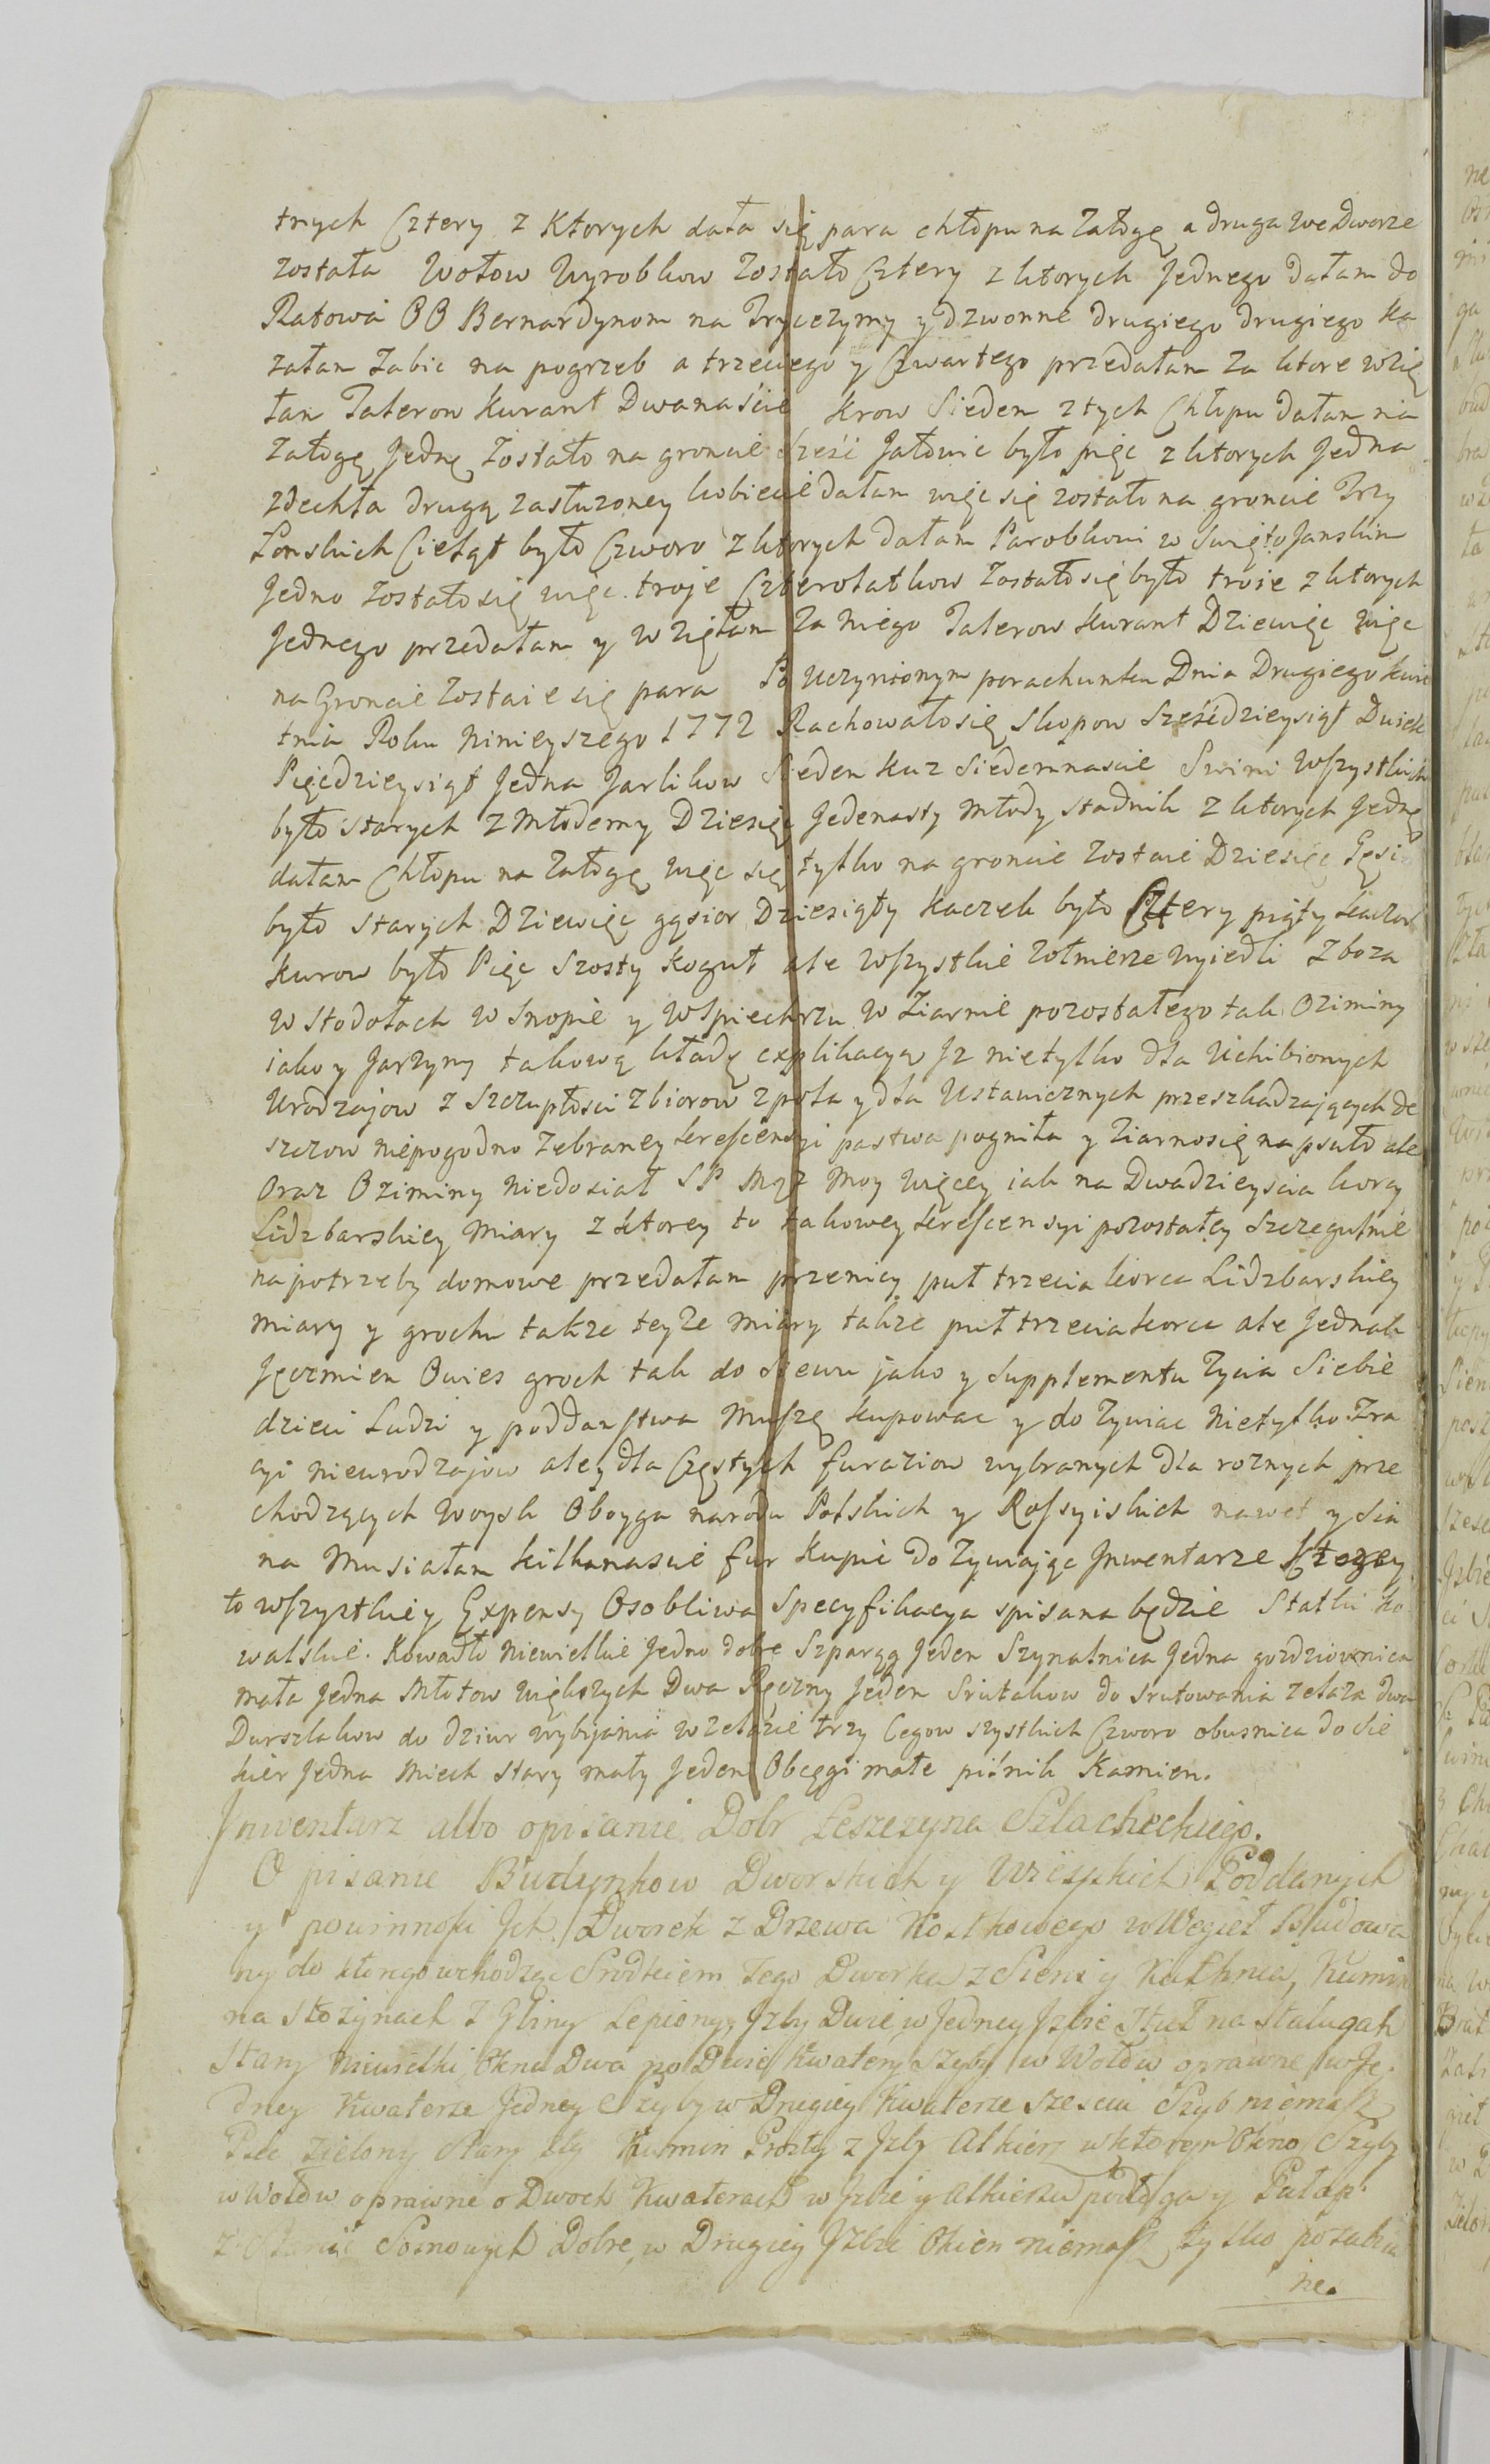 trych Cztery z Ktorych data się para chłopu na Załogę a druga we Dworze
została Wołow Wyrobkow Zostało Cztery z ktorych Jednego dałam do
Ratowa OO Bernardynom na Trycezymy y dzwonne drugiego drugiego ka
załam Zabic na pogrzeb a trzeciego y Czwartego przedałam za ktore wzię
łam Talerow kurant Dwanaście krow Siedem z tych Chłopu dałam na
Załogę Jednę Zostało na groncie Sześć Jałowic było pięc z ktorych Jedna
zdechła drugą zasłużoney kobiecie dałam więc się zostało na groncie Trzy
Łonskich Cieląt było Czworo z ktorych dałam Parobkowi w SwiętoJanskim
Jedno Zostało się więc troje Czterolatkow Zostało się było troie z ktorych
Jednego przedałam y Wzięłam Za Niego Talerow kurant Dziewięc więc
na Groncie Zostaie się para Po Uczynionym porachunku Dnia Drugiego kwie
tnia Roku Ninieyszego 1772 Rachowało się Skopow Sześćdzieysiąt Owiek
Pięcdzieysiąt Jedna Jarlikow Siedem kuz Siedemnascie Swini Wszystkich
było starych z Młodemy Dziesięc Jedenasty Młody stadnik z ktorych Jednę
dałam Chłopu na Załogę więc się tylko na groncie Zostaie Dziesięc Gęsi
było Starych Dziewięc gąsior Dziesiąty kaczek było Cztery piąty kaczor
kurow było Pięc Szosty kogut ale Wszystkie Zołnierze Wyiedli Zboza
W Stodołach W Snopie y W Spiechrzu W Ziarnie pozostałego tak Oziminy
iako y Jarzyny takową kładę explikacyą Jz nietylko dla Uchibionych
Urodzajow z Szczupłosci Zbiorow z pola y dla Ustawicznych przeszkadzających de
szczow niepogodno Zebraney krescensyi pastwa pogniła y Ziarno się napsuło ale
Oraz Oziminy niedosiał SP Mąz Moy więcey iak na Dwadzieyscia korcy
Lidzbarskiey Miary z ktorey to takowey krescensyi pozostałey Szczegulnie
na potrzeby domowe przedałam przenicy puł trzecia korca Lidzbarskiey
miary y grochu takze teyze miary takze puł trzecia korca ale Jednak
Jęczmien Owies groch tak do Siewu jako y Supplementu Zycia Siebie
dzieci Ludzi y poddanstwa Muszę kupowac y do Zywiac Nietylko Zra
cyi nieurodzajow ale y dla Częstych furaziow wybranych dla roznych prze
chodzących Woysk Oboyga narodu Polskich y Rossyiskich nawet y Sia
na Musiałam kilkanascie fur kupic do Zywiając Jnwentarze
to wszystkiey Expensy Osobliwa Specyfikacya spisana będzie Statki ko
walskie. Kowadło Niewielkie Jedno dobre Szparąg Jeden Szynalnica Jedna gozdziownica
mała Jedna Młotow większych Dwa Ręczny Jeden Srutakow do srutowania zelaza dwa
Durszlakow do dziur wybijania w zelazie trzy Cegow szystkich Czworo obusnica do Sie
kier Jedna Miech stary mały Jeden Obcęgi małe pilnik Kamien.
Jnwentarz albo opisanie Dobr Leszczyna Szlacheckiego.
Opisanie Budynkow Dworskich y Wieyskich Poddanych
y powinnosci Jch. Dworek z Drzewa Kostkowego w Węgieł Budowa
ny do ktorego wchodząc Srodkiem Tego Dworku z Sieni y Kuchnia, Kumin
na Stozynach z Gliny Lepiony, Jzby Dwie, w Jedney Jzbie Stuł na Stalugah
Stary Niewielki, Okna Dwa po Dwie Kwatery Szyby w Wołow oprawne w Je
dney Kwaterze Jedney Szyby w Drugiey Kwaterze Szesciu Szyb niemasz
Piec Zielony Stary zły Kumin Prosty z Jzby Alkierz w ktorym Okno Szyby
w Wołow oprawne o Dwoch Kwaterach w Jzbie y Alkierzu podłoga y Pułap
z Sosnowych Dobre, w Drugiey Jzbie Okien niemasz tylko pozabia
ne.